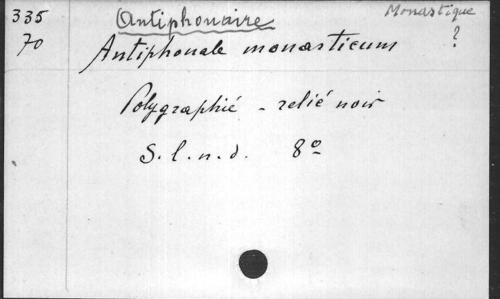 335 Antiphonaire Monastique
70 Antiphonale monasticum ?
Polygraphié - relié noir
S. l. n. d. 8º